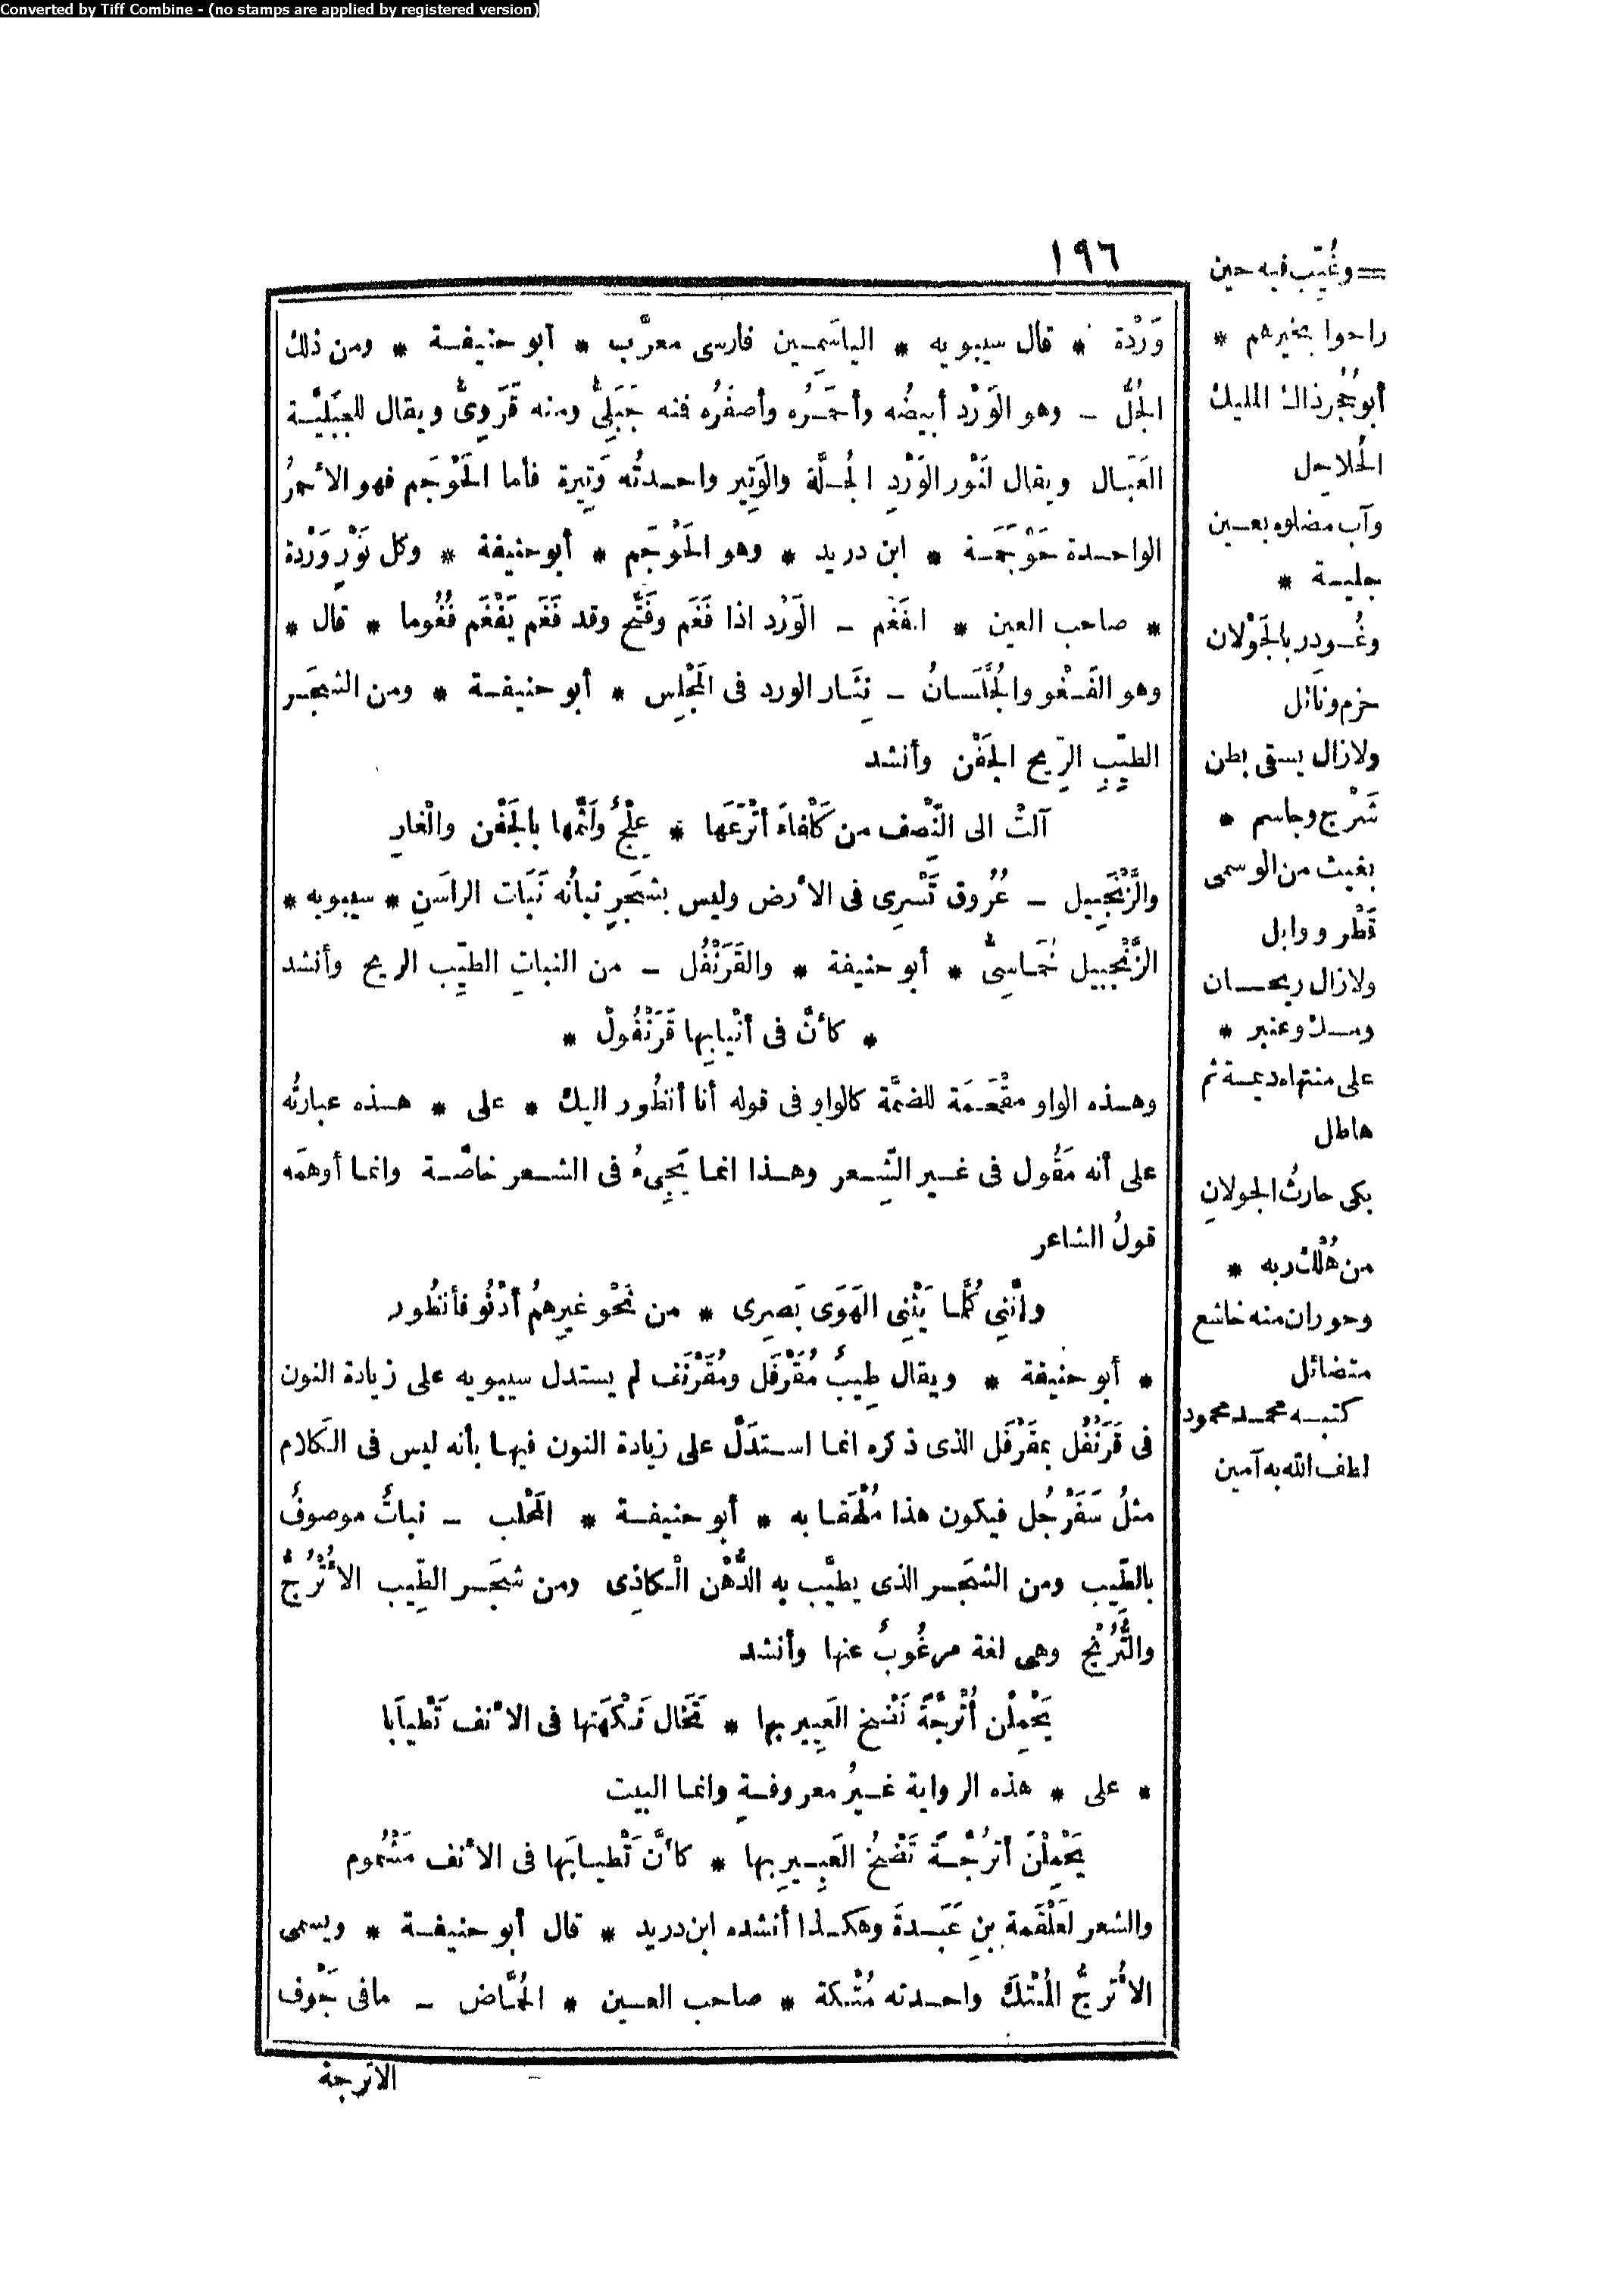 Converted by Tiff Combine - (no stamps are applied by registered version)
١٩٦
وَرْدة * قال سيبويه * الياسَمِين فارسى معرَّب * أبو حنيفة * ومن ذلك
الجُلُّ - وهو الوَرْد أبيضُه وأحمَرُه وأصفَرُه فمنه جَبَلِىٌّ ومنه قَرَوِىٌّ ويقال للجبَلِيَّة
العَبَال ويقال لنَوْر الوَرْدِ الجُلَّة والوَتِير واحدتُه وَتِيرة فأما الحَوْجَم فهو الأحمرُ
الواحدة حَوْجَمَة * ابن دريد * وهو الحَوْجَم * أبو حنيفة * وكل نَوْرٍ وَرْدة
* صاحب العين * الفَغْم - الوَرْد اذا فَغَم وفَتَّح وقد فَغَم يَفْغَم فُغُوما * قال *
وهو الفَغْو والجُلَّسَانُ - نِثَار الورد فى المَجْلِس * أبو حنيفة * ومن الشجَر
الطيِّبِ الرِّيح الجَفْن وأنشد
آلتْ الى النّصف من كَلْفاءَ أتْرَعَها * عِلْجٌ ولَثَّمها بالجَفْن والْغارِ
والزَّنْجَبِيل - عُرُوق تَسْرِى فى الأرض وليس بشجَرٍ نباتُه نَبَات الراسَنِ * سيبويه *
الزَّنْجبيل خُمَاسِىٌّ * أبو حنيفة * والقَرَنْفُل - من النباتِ الطيِّب الريح وأنشد
* كأنَّ فى أنْيابِها قَرَنْفُولْ *
وهذه الواو مقْحَمَة للضمَّة كالواو فى قوله أنا أنظُور اليك * على * هذه عبارتُه
على أنه مَقُول فى غير الشِّعر وهذا انما يَجِىءُ فى الشعر خاصَّة وانما أوهمَه
قولُ الشاعر
وانَّنِى كُلَّما يَثْنِى الهَوَى بَصرِى * من نَحْو غيرِهمُ أدْنُو فأنظُور
* أبو حنيفة * ويقال طِيبٌ مُقَرْفَل ومُقَرْنَف لم يستدل سيبويه على زيادة النون
فى قَرَنْفُل بمقَرْفَل الذى ذكره انما استدَلَّ على زيادة النون فيها بأنه ليس فى الكَلام
مثلُ سَفَرْجُل فيكون هذا مُلْحَقا به * أبو حنيفة * المَحْلب - نباتٌ موصوفٌ
بالطِّيب ومن الشجَر الذى يطيَّب به الدُّهْن الْكاذِى ومن شجَر الطِّيب الأُتْرُجُّ
والتُّرُنْج وهى لغة مرغُوبٌ عنها وأنشد
يَحْمِلْن أُتْرجَّةً نَضْخ العَبِير بها * تَخَال نَكْهَتها فى الأنف تَطْياَبا
* على * هذه الرواية غيرُ معروفةٍ وانما البيت
يَحْمِلْنَ أترُجَّةً نَضْخُ العَبِيرِ بها * كأنَّ تَطْيابَها فى الأنف مَشْمُوم
والشعر لعَلْقَمة بنِ عَبَدةَ وهكذا أنشده ابن دريد * قال أبو حنيفة * ويسمى
الأُترجُّ المُتْكَ واحدته مُتْكة * صاحب العين * الحُمَّاض - مافى جَوْف
الاترجة
= وغُيِّب فيه حين
راحوا بخيرهم *
أبو حُجُر ذاك المليك
الحُلاحِل
وآب مضلوه بعين
جلية *
وغُودر بالجَوْلان
حزم ونائل
ولا زال يسقى بطن
شَرْج وجاسم *
بغيث من الوسمى
قَطْر ووابل
ولا زال ريحان
ومسك وعنبر *
على منتهاه ديمة ثم
هاطل
بكى حارثُ الجولانِ
من هُلْك ربه *
وحوران منه خاشع
متضائل
كتبه محمد محمود
لطف الله به آمين